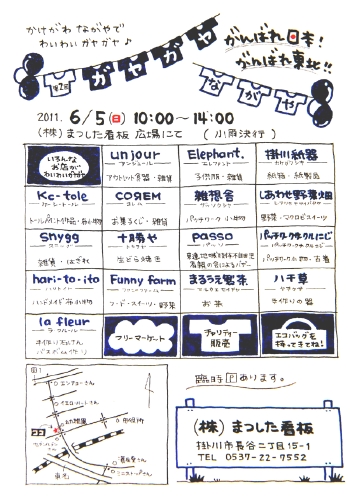 かけがわ ながやで
わいわい ガヤガヤ♪
がんばれ日本!
がんばれ東北!!
第2回
ガヤガヤ
ながや
2011. 6/5(日) 10:00〜14:00
(株)まつした看板 広場にて (小雨決行)
いろんな
お店が
わいわいガヤガヤ
un jour
アンジュール
アウトレット食器・雑貨
Elephant.
エレファント
子供服・雑貨
掛川紙器
カケガワシキ
紙箱・紙製品
Kc-tole
ケーシートール
トールペイント作品・布小物
COЯEM
コレム
お菓子くじ・雑貨
雑想舎
パッチワーク 小物
しあわせ野菜畑
野菜・マクロビスイーツ
snygg
スニッグ
雑貨・はぎれ
十勝や
トカチヤ
passo
パッソ
パッチワークキルトにじ
パッチワークキルト にじ
パッチワーク小物・古着
hari-to-ito
ハリトイト
ハンドメイド布小物
Funny farm
ファニーファーム
フード・スイーツ・野菜
まるうえ製茶
マルウエセイチャ
お茶
八千草
ヤチグサ
手作りの器
la fleur
ラ フルール
フリーマーケット
チャリティー
販売
エコバッグを
持ってきてね!
臨時Ⓟあります。
(株)まつした看板
掛川市長谷二丁目15-1
TEL 0537-22-7552